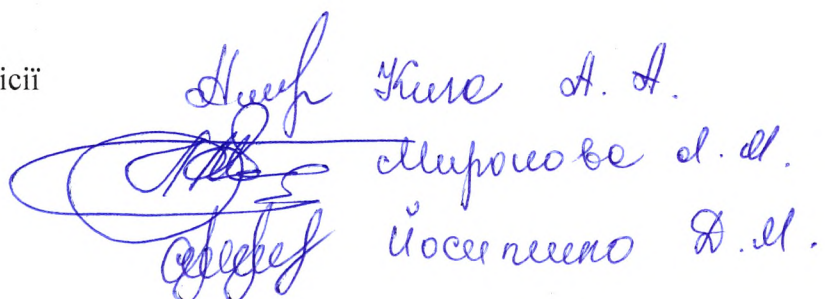 ісії Кига А. А.
Миронова Л. М.
Йосипенко Д. М.